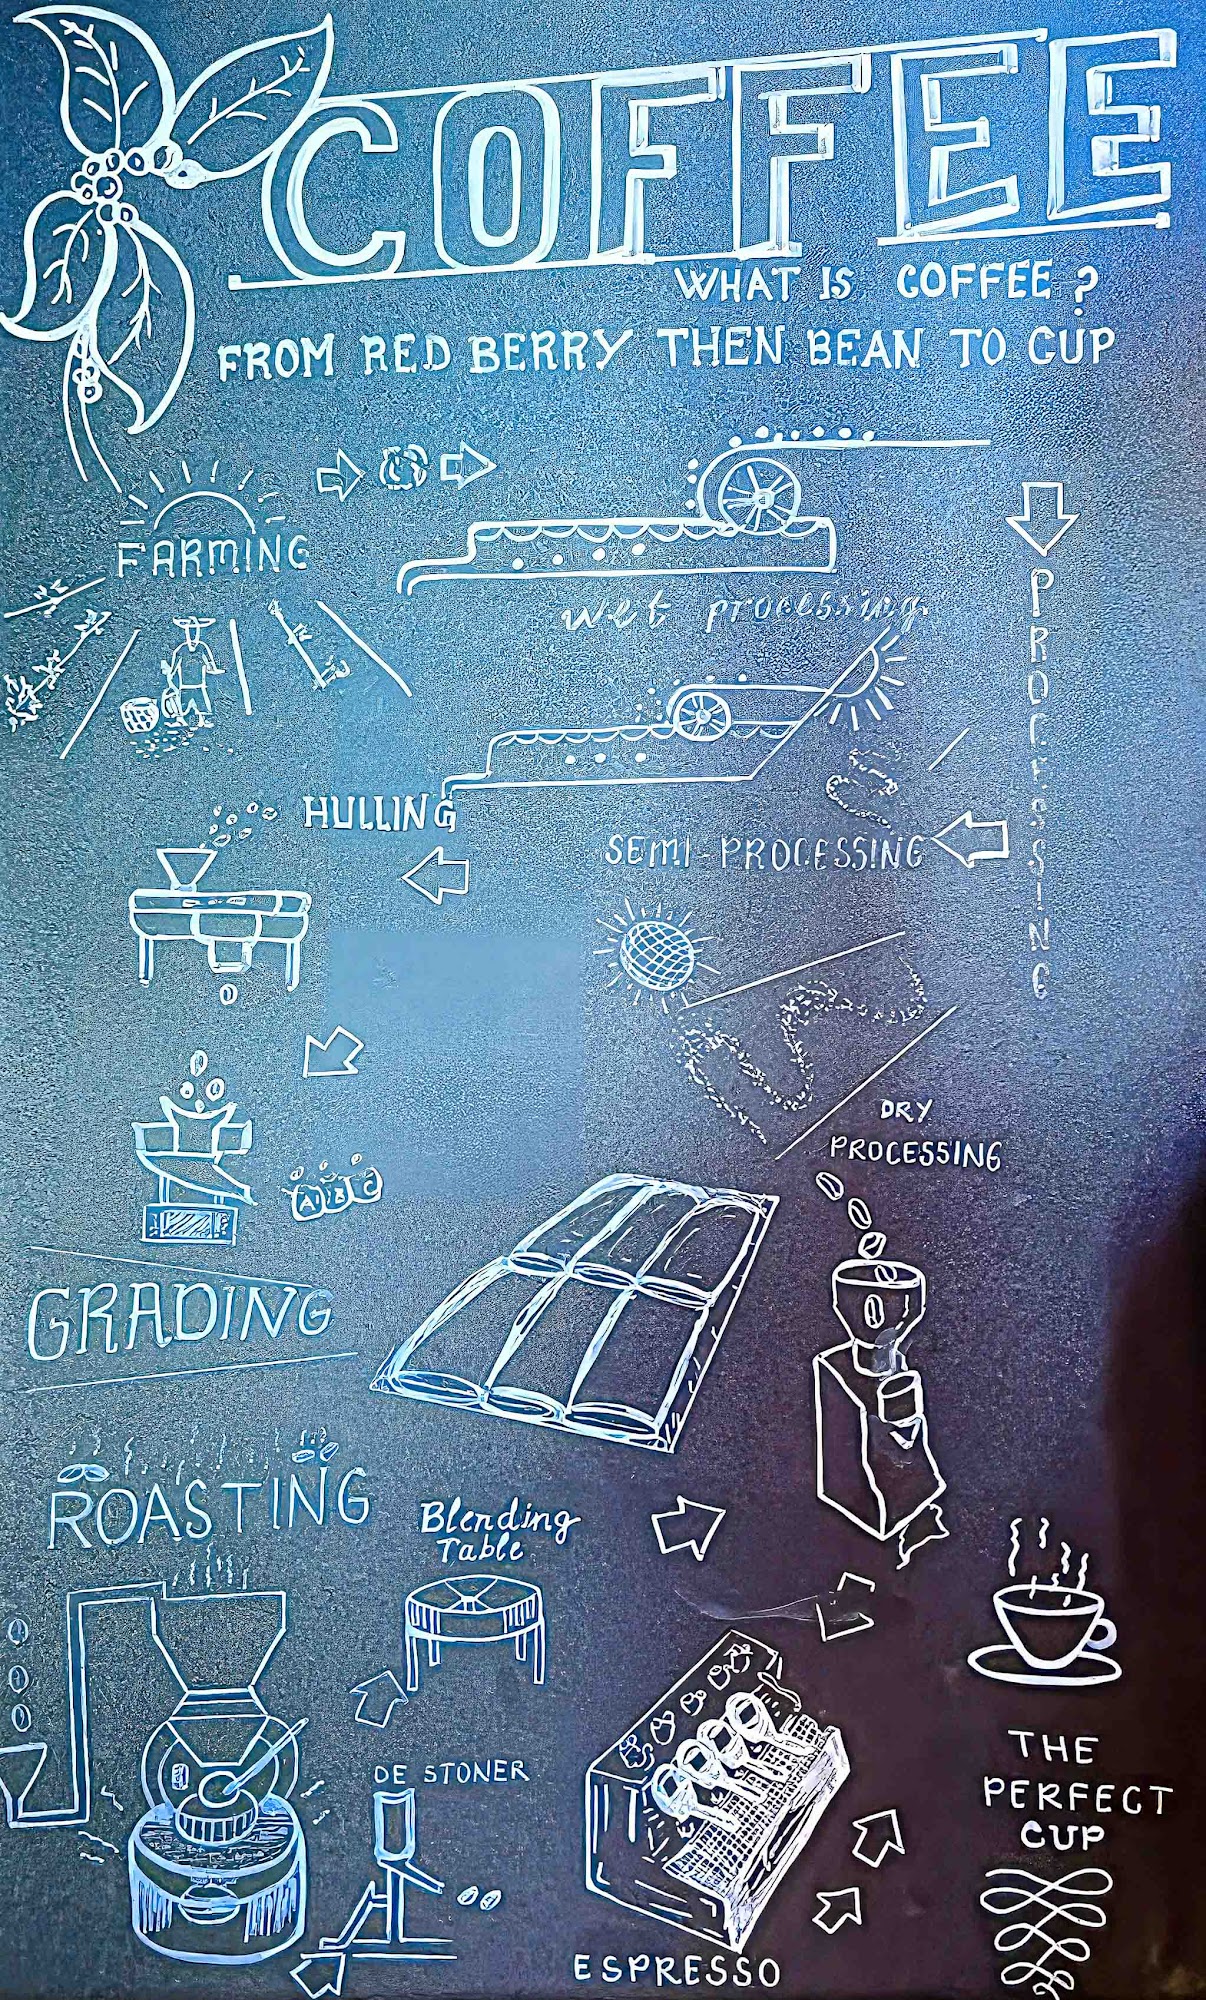 COFFEE
WHAT IS COFFEE?
FROM RED BERRY THEN BEAN TO CUP
FARMING
wet processing
PROCESSING
HULLING
SEMI-PROCESSING
DRY
PROCESSING
A B C
GRADING
ROASTING
Blending
Table
DE STONER
ESPRESSO
THE
PERFECT
CUP